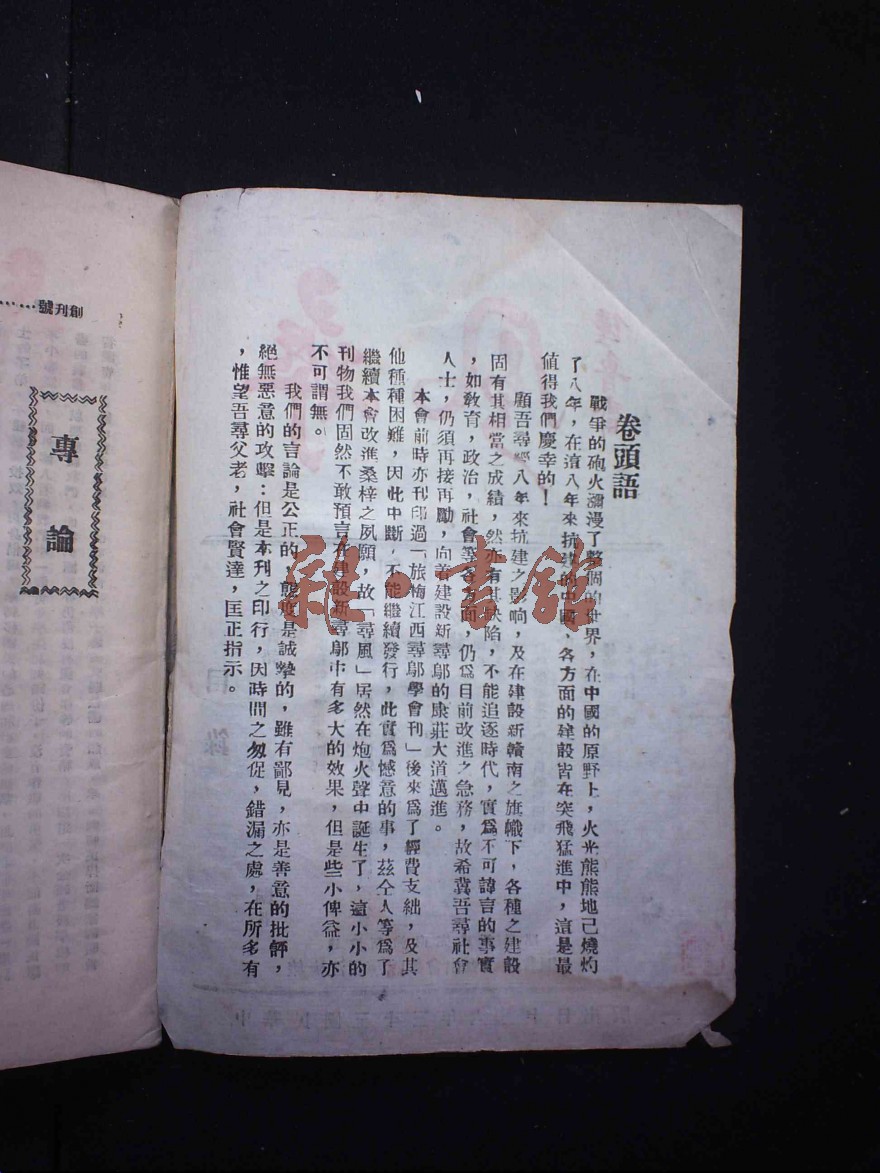 卷頭語
戰爭的砲火瀰漫了整個的世界，在中國的原野上，火光熊熊地已燒灼
了八年，在這八年來抗建的中國，各方面的建設皆在突飛猛進中，這是最
值得我們慶幸的！
顧吾尋鄔八年來抗建之影响，及在建設新贛南之旗幟下，各種之建設
固有其相當之成績，然亦有其缺陷，不能追逐時代，實爲不可諱言的事實
，如教育，政治，社會等各方面，仍爲目前改進之急務，故希冀吾尋社會
人士，仍須再接再勵，向着建設新尋鄔的康莊大道邁進。
本會前時亦刊印過「旅梅江西尋鄔學會刊」後來爲了經費支絀，及其
他種種困難，因此中斷，不能繼續發行，此實爲憾意的事，茲仝人等爲了
繼續本會改進桑梓之夙願，故「尋風」居然在炮火聲中誕生了，這小小的
刊物我們固然不敢預言在建設新尋鄔中有多大的效果，但是些小俾益，亦
不可謂無。
我們的言論是公正的，態度是誠摯的，雖有鄙見，亦是善意的批評，
絕無惡意的攻擊：但是本刊之印行，因時間之匆促，錯漏之處，在所多有
，惟望吾尋父老，社會賢達，匡正指示。
創刊號……
專論
雜·書館